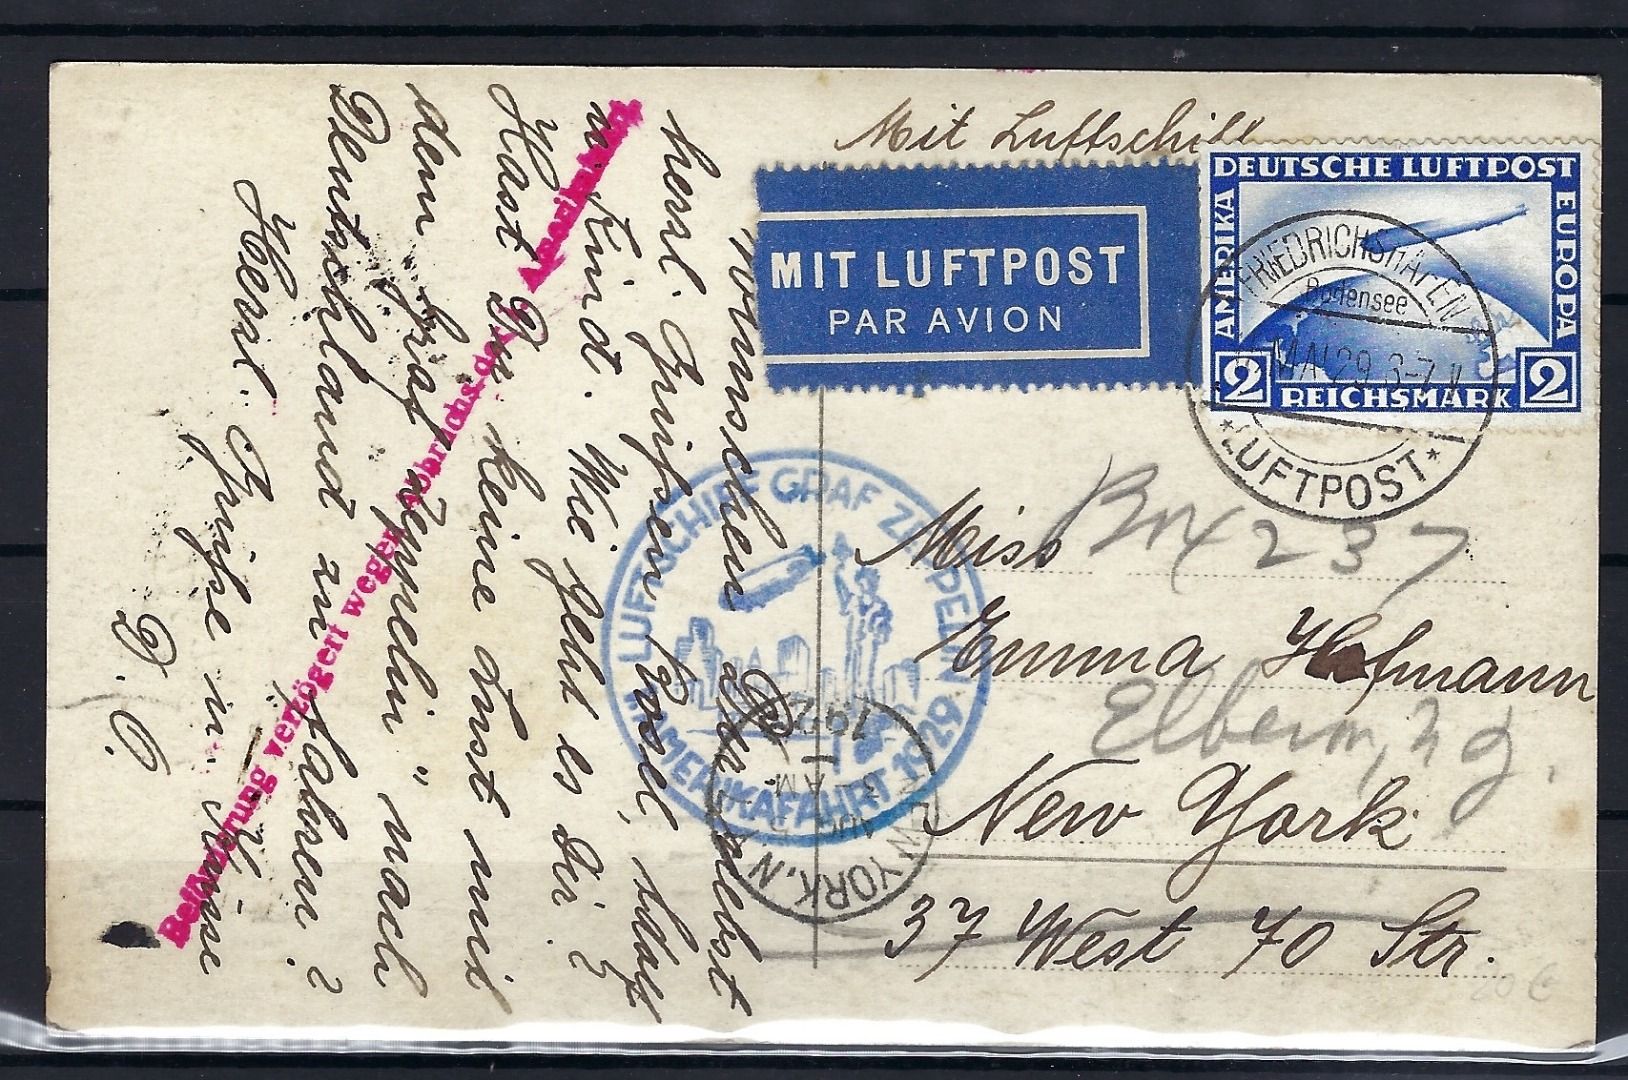 Mit Luftschiff
MIT LUFTPOST
PAR AVION
DEUTSCHE LUFTPOST
AMERIKA
EUROPA
2 REICHSMARK 2
FRIEDRICHSHAFEN
Bodensee
MAI 29 3-7
* LUFTPOST *
LUFTSCHIFF GRAF ZEPPELIN
AMERIKAFAHRT 1929
NEW YORK, N.Y.
AUG 5
3 AM
1929
Beförderung verzögert wegen Abbruchs der
Miss
Emma Hofmann
New York
37 West 70 Str.
Box 237
Elberon, N. J.
20 €
Kind. Wie geht es Dir?
Hast Du keine Lust mit
dem Graf Zeppelin" nach
Deutschland zu fahren?
Herzl. Grüsse in Kürze
D. O.